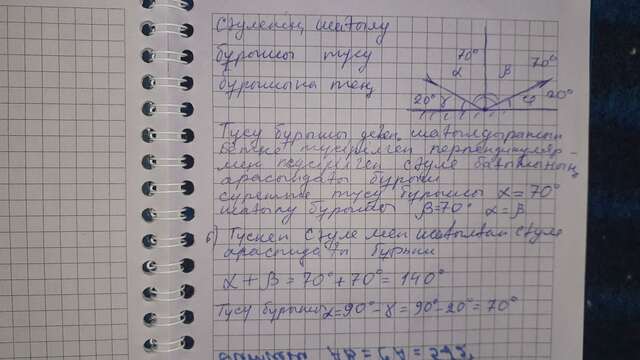 Сәуленің шағылу
бұрышы түсу
бұрышына тең
70° 70°
α β
20° γ φ 20°
Түсу бұрышы деген шағылдыратын
бетке түсірілген перпендикуляр-
мен түсірілген сәуле бағытының
арасындағы бұрыш
суретте түсу бұрышы α = 70°
шағылу бұрышы β=70° α=β
б) Түскен сәуле мен шағылған сәуле
арасындағы бұрыш
α + β = 70° + 70° = 140°
Түсу бұрышы α=90°-γ=90°-20°=70°